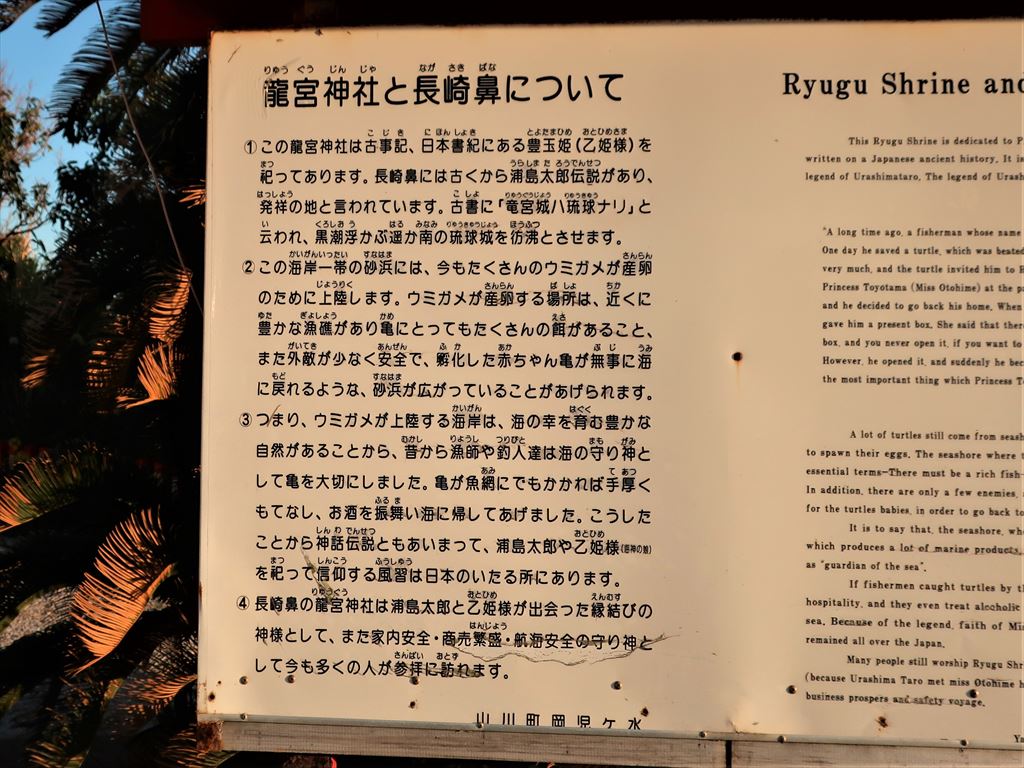 龍宮神社と長崎鼻について
①この龍宮神社は古事記、日本書紀にある豊玉姫(乙姫様)を
祀ってあります。長崎鼻には古くから浦島太郎伝説があり、
発祥の地と言われています。古書に「竜宮城ハ琉球ナリ」と
云われ、黒潮浮かぶ遥か南の琉球城を彷沸とさせます。
②この海岸一帯の砂浜には、今もたくさんのウミガメが産卵
のために上陸します。ウミガメが産卵する場所は、近くに
豊かな漁礁があり亀にとってもたくさんの餌があること、
また外敵が少なく安全で、孵化した赤ちゃん亀が無事に海
に戻れるような、砂浜が広がっていることがあげられます。
③つまり、ウミガメが上陸する海岸は、海の幸を育む豊かな
自然があることから、昔から漁師や釣人達は海の守り神と
して亀を大切にしました。亀が魚網にでもかかれば手厚く
もてなし、お酒を振舞い海に帰してあげました。こうした
ことから神話伝説ともあいまって、浦島太郎や乙姫様
を祀って信仰する風習は日本のいたる所にあります。
④長崎鼻の龍宮神社は浦島太郎と乙姫様が出会った縁結びの
神様として、また家内安全・商売繁盛・航海安全の守り神と
して今も多くの人が参拝に訪れます。
山川町岡児ヶ水
Ryugu Shrine and
This Ryugu Shrine is dedicated to P
written on a Japanese ancient history. It is
legend of Urashimataro. The legend of Urash
"A long time ago, a fisherman whose name
One day he saved a turtle, which was beated
very much, and the turtle invited him to R
Princess Toyotama (Miss Otohime) at the pa
and he decided to go back his home. When
gave him a present box. She said that ther
box, and you never open it, if you want to
However, he opened it, and suddenly he bec
the most important thing which Princess T
A lot of turtles still come from seash
to spawn their eggs. The seashore where t
essential terms-There must be a rich fish-
In addition, there are only a few enemies,
for the turtles babies, in order to go back to
It is to say that, the seashore, wh
which produces a lot of marine products,
as "guardian of the sea".
If fishermen caught turtles by th
hospitality, and they even treat alcoholic
sea. Because of the legend, faith of Mi
remained all over the Japan.
Many people still worship Ryugu Shr
(because Urashima Taro met miss Otohime h
business prospers and safety voyage.
Ya